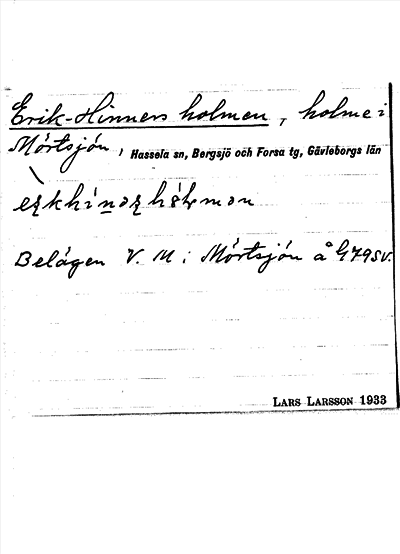 Erik-Hinners holmen, holme i
Mörtsjön, Hassela sn, Bergsjö och Forsa tg, Gävleborgs län
Belägen V. M i Mörtsjön å G 79 SV.
LARS LARSSON 1933